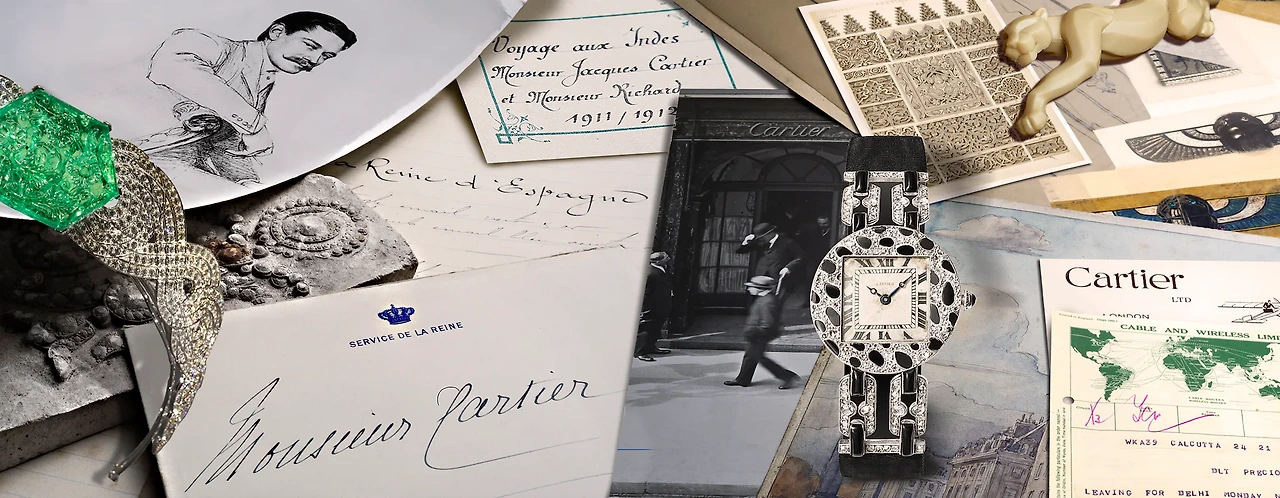 Voyage aux Indes
Monsieur Jacques Cartier
et Monsieur Richard
1911 / 1912
Reine d'Espagne
SERVICE DE LA REINE
Monsieur Cartier
Cartier
Cartier
LTD
LONDON
CABLE AND WIRELESS LIMI
WKA39 CALCUTTA 24 21
DLT PRECIO
LEAVING FOR DELHI MONDAY